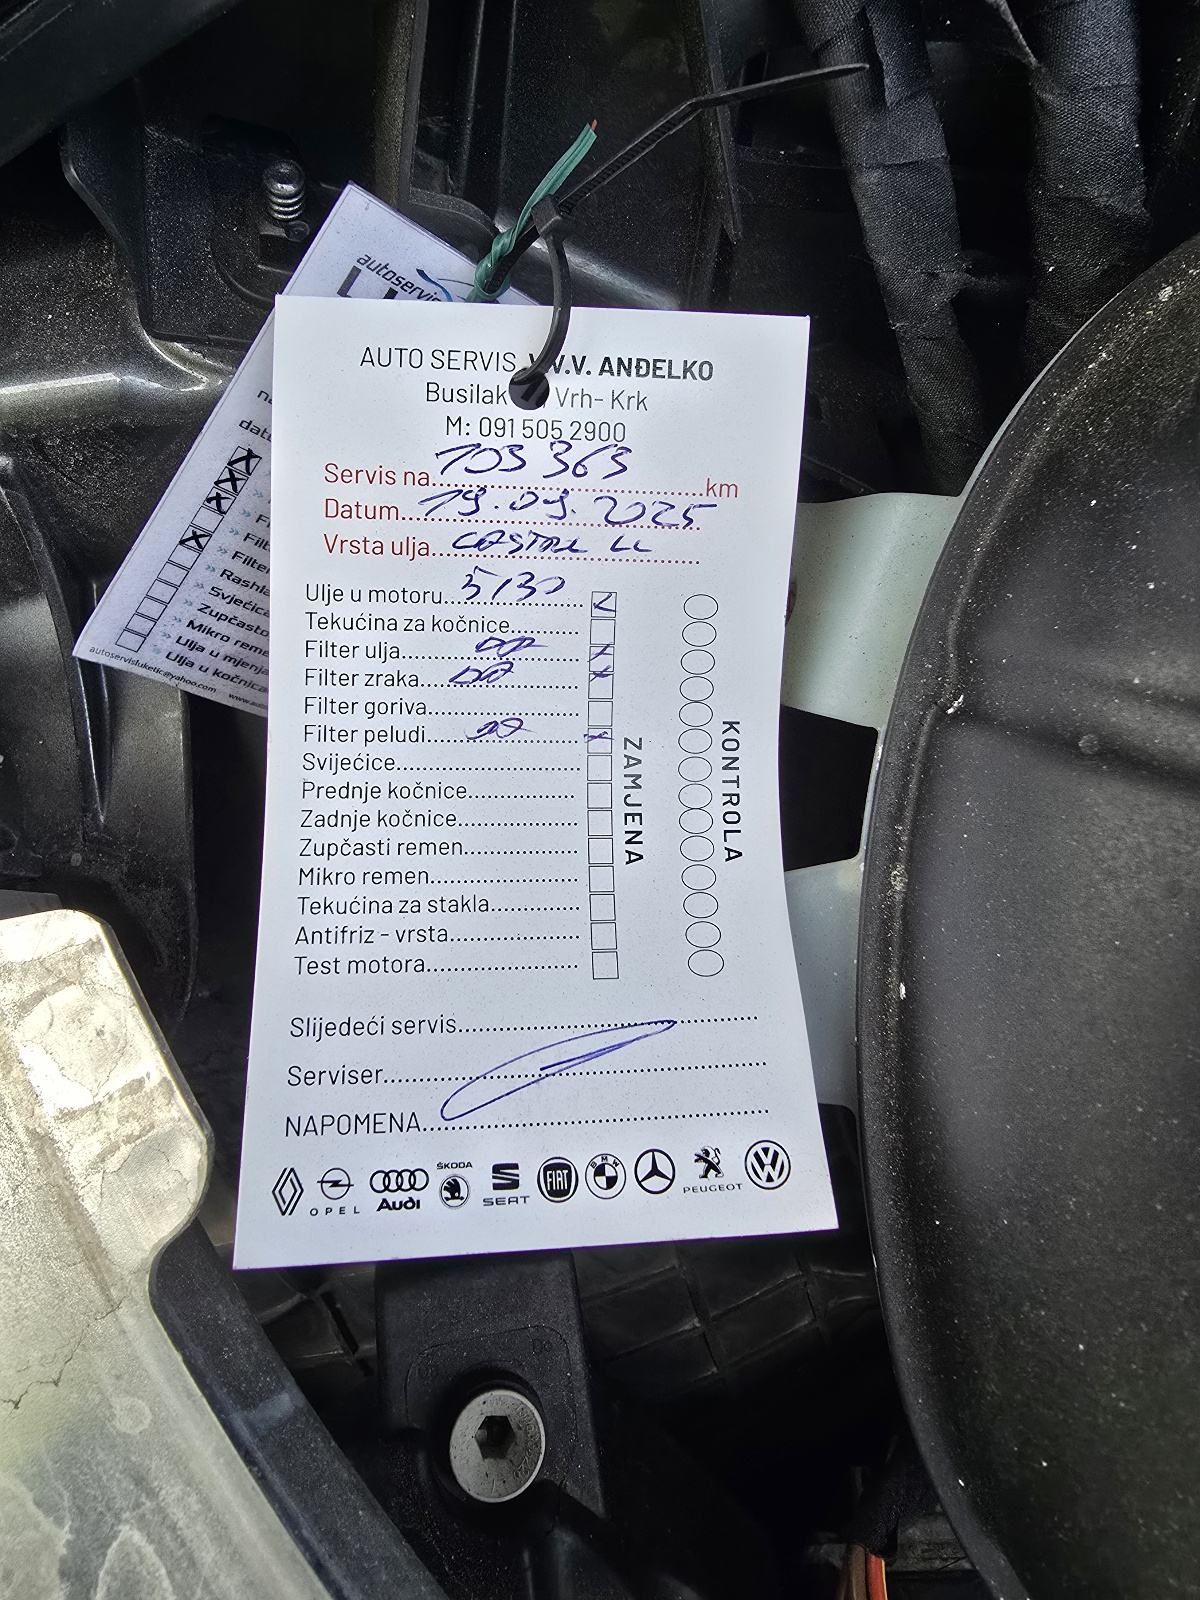 autoservis
AUTO SERVIS V.V. ANĐELKO
Busilak Vrh- Krk
M: 091 505 2900
Servis na 103 363 km
Datum 19.09.2025
Vrsta ulja CASTROL LL
Ulje u motoru 5/30
Tekućina za kočnice
Filter ulja DA x
Filter zraka DA x
Filter goriva
Filter peludi DA x
Svijećice
Prednje kočnice
Zadnje kočnice
Zupčasti remen
Mikro remen
Tekućina za stakla
Antifriz - vrsta
Test motora
ZAMJENA
KONTROLA
Slijedeći servis
Serviser
NAPOMENA
OPEL
Audi
ŠKODA
SEAT
FIAT
BMW
PEUGEOT
x
x
x
x
» Filter
» Rashla
» Svjećica
» Zupčasto
» Mikro reme
» Ulja u mjenja
» Ulja u kočnica
autoservisluketic@yahoo.com